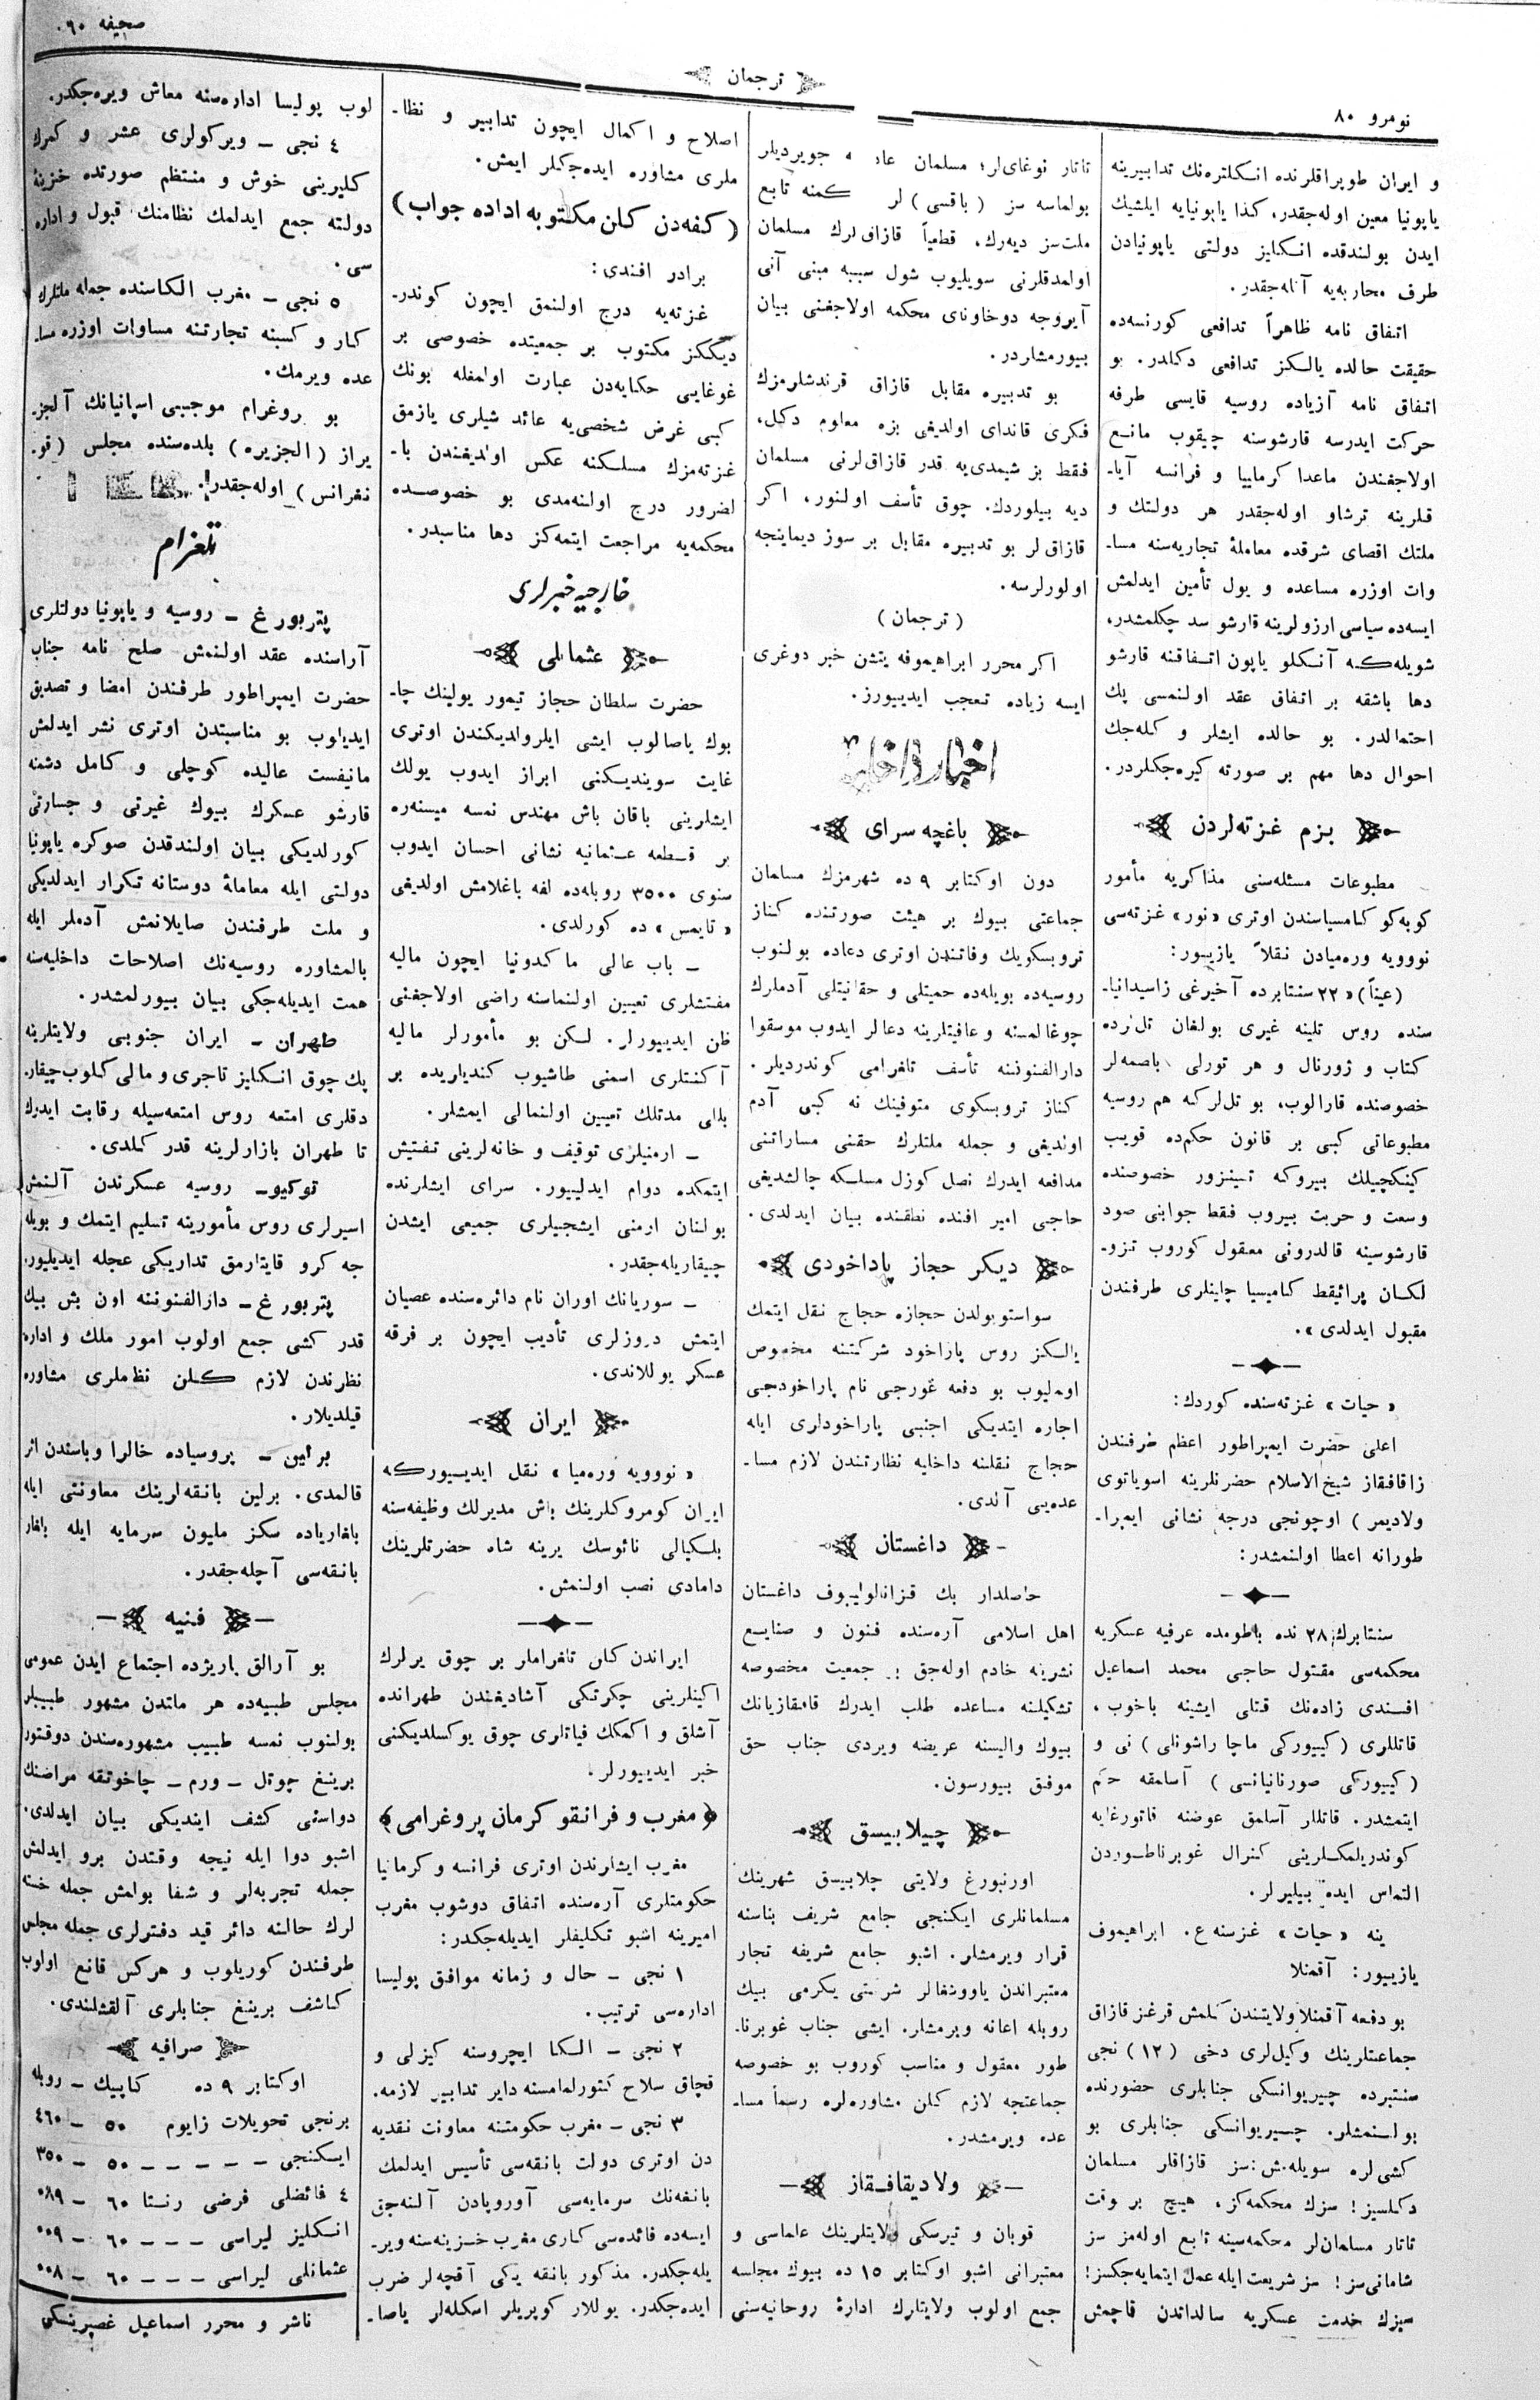 نومرو ٨٠
ترجمان
صحیفه ٦٠
و ایران طوپراقلرنده انکلتره‌نك تدابیرینه
یاپونیا معین اوله‌جقدر، کذا یاپونیایه ایلشیك
ایدن بولندقده انکلیز دولتی یاپونیادن
طرف محاربه‌یه آله‌جقدر.
اتفاق نامه ظاهراً تدافعی کورنسه‌ده
حقیقت حالده یالکز تدافعی دکلدر. بو
اتفاق نامه آزیاده روسیه قایسی طرفه
حرکت ایدرسه قارشوسنه چیقوب مانع
اولاجغندن ماعدا کرمانیا و فرانسه آیا-
قلرینه ترشاو اوله‌جقدر هر دولتك و
ملتك اقصای شرقده معاملهٔ تجاریه‌سنه مسا-
وات اوزره مساعده و یول تأمین ایدلمش
ایسه‌ده سیاسی ارزولرینه قارشو سد چکلمشدر،
شویله‌که آنکلو یاپون اتفاقنه قارشو
دها باشقه بر اتفاق عقد اولنمسی پك
احتمالدر. بو حالده ایشلر و کله‌جك
احوال دها مهم بر صورته کیره‌جکلردر.
بزم غزته‌لردن
مطبوعات مسئله‌سنی مذاکریه مأمور
کوبه‌کو کامسیاسندن اوتری «نور» غزته‌سی
نوویه وره‌میادن نقلاً یازیبور:
(عیناً) «٢٢ سنتابرده آخیرغی زاسیدانیا-
سنده روس تلینه غیری بولغان تل‌زده
کتاب و ژورنال و هر تورلی باصمه‌لر
خصوصنده قارالوب، بو تل‌لرکه هم روسیه
مطبوعاتی کبی بر قانون حکمده قویب
کینکچیلك بیروکه تسینزور خصوصنده
وسعت و حریت بیروب فقط جوابنی صود
قارشوسینه قالدرونی معقول کوروب تزو-
لکان پرائیقط کامیسیا چاینلری طرفندن
مقبول ایدلدی».
«حیات» غزته‌سنده کوردك:
اعلی حضرت ایمپراطور اعظم طرفندن
زاقافقاز شیخ‌الاسلام حضرتلرینه اسویاتوی
ولادیمر) اوچونجی درجه نشانی ایمپرا-
طورانه اعطا اولنمشدر:
سنتابرك ٢٨ نده باطومده عرفیه عسکریه
محکمه‌سی مقتول حاجی محمد اسماعیل
افندی زاده‌نك قتلی ایشینه باخوب،
قاتللری (کیبورکی ماچا راشونلی) نی و
(کیبورکی صورنانیانسی) آسامقه حکم
ایتمشدر. قاتللر آسلمق عوضنه قاتورغایه
کوندریلمکلرینی کنرال غوبرناطوردن
التماس ایده بیلیرلر.
ینه «حیات» غزسنه ع. ابراهیموف
یازیبور: آقمنلا
بو دفعه آقمنلا ولایتندن کلمش قرغز قازاق
جماعتلرینك وکیل‌لری دخی (١٢) نجی
سنتبرده چیریوانسکی جنابلری حضورنده
بولنمشلر. چیریوانسکی جنابلری بو
کشی لره سویله‌مش: سز قازاقلر مسلمان
دکلسیز! سزك محکمه‌کز، هیچ بر وقت
تاتار مسلمان‌لر محکمه‌سینه تابع اوله‌مز سز
شامانی‌سز! سز شریعت ایله عمل ایتمایه‌جکسز!
سیزك خدمت عسکریه سالداتدن قاچمش
تاتار نوغای‌لر؛ مسلمان عا جویردیلر
بولماسه سز (باقسی) لر کمنه تابع
ملت‌سز دیه‌رك، قطعیاً قازاق‌لرك مسلمان
اولمدقلرنی سویلیوب شول سببه مبنی آنی
آیروجه دوخاونای محکمه اولاجغنی بیان
بیورمشاردر.
بو تدبیره مقابل قازاق قرندشلرمزك
فکری قاندای اولدیغی بزه معلوم دکل،
فقط بز شیمدی‌یه قدر قازاق‌لرنی مسلمان
دیه بیلوردك. چوق تأسف اولنور، اکر
قازاق‌لر بو تدبیره مقابل بر سوز دیماینجه
اولورلرسه.
(ترجمان)
اکر محرر ابراهیموفه یتشن خبر دوغری
ایسه زیاده تعجب ایدییورز.
اخبار داخلیه
باغچه سرای
دون اوکتابر ٩ ده شهرمزك مسلمان
جماعتی بیوك بر هیئت صورتنده کناز
تروبسکویك وفاتندن اوتری دعاده بولنوب
روسیه‌ده بویله‌ده حمیتلی و حقانیتلی آدملرك
چوغالمسنه و عافیتلرینه دعالر ایدوب موسقوا
دارالفنوننه تأسف تلغرامی کوندردیلر.
کناز تروبسکوی متوفینك نه کبی آدم
اولدیغی و جمله ملتلرك حقنی مساراتنی
مدافعه ایدرك نصل کوزل مسلکه چالشدیغی
حاجی امیر افنده نطقنده بیان ایدلدی.
دیکر حجاز پاداخودی
سواستوبولدن حجازه حجاج نقل ایتمك
یالکز روس پاراخود شرکتنه مخصوص
اولمیوب بو دفعه غورجی نام پاراخودجی
اجاره ایتدیکی اجنبی پاراخودلری ایله
حجاج نقلنه داخلیه نظارتندن لازم مسا-
عده‌یی آلدی.
داغستان
حاصلدار بك قزانالوایبوف داغستان
اهل اسلامی آره‌سنده فنون و صنایع
نشرینه خادم اوله‌جق بر جمعیت مخصوصه
تشکیلنه مساعده طلب ایدرك قافقازیانك
بیوك والیسنه عریضه ویردی جناب حق
موفق بیورسون.
چیلابیسق
اورنبورغ ولایتی چلابیسق شهرینك
مسلمانلری ایکنجی جامع شریف بناسنه
قرار ویرمشلر. اشبو جامع شریفه تجار
معتبراندن یاووشفالر شرکتی یکرمی بیك
روبله اعانه ویرمشلر. ایشی جناب غوبرنا-
طور معقول و مناسب کوروب بو خصوصه
جماعتجه لازم کلن مشاوره‌لره رسماً مسا-
عده ویرمشدر.
ولادیقافقاز
قوبان و تیرسکی ولایتلرینك علماسی و
معتبرانی اشبو اوکتابر ١٥ ده بیوك مجلسه
جمع اولوب ولایتلرك ادارهٔ روحانیه‌سنی
اصلاح و اکمال ایچون تدابیر و نظا-
ملری مشاوره ایده‌جکلر ایمش.
(کفه‌دن کلن مکتوبه اداده جواب)
برادر افندی:
غزته‌یه درج اولنمق ایچون کوندر-
دیککز مکتوب بر جمعیتده خصوصی بر
غوغایی حکایه‌دن عبارت اولمغله بونك
کبی غرض شخصی‌یه عائد شیلری یازمق
غزته‌مزك مسلکنه عکس اولدیغندن با-
لضرور درج اولنه‌مدی بو خصوصده
محکمه‌یه مراجعت ایتمه‌کز دها مناسبدر.
خارجیه خبرلری
عثمانلی
حضرت سلطان حجاز تیمور یولینك چا-
بوك یاصالوب ایشی ایلرولدیکندن اوتری
غایت سویندیکنی ابراز ایدوب یولك
ایشلرینی باقان باش مهندس نمسه میسنه‌ره
بر قطعه عثمانیه نشانی احسان ایدوب
سنوی ٣٥٠٠ روبله‌ده لفه باغلامش اولدیغی
«تایمس» ده کورلدی.
— باب عالی ماکدونیا ایچون مالیه
مفتشلری تعیین اولنماسنه راضی اولاجغنی
ظن ایدیبورلر. لکن بو مأمورلر مالیه
آکنتلری اسمنی طاشیوب کندیلریده بر
بللی مدتلك تعیین اولنمالی ایمشلر.
— ارمنیلری توقیف و خانه‌لرینی تفتیش
ایتمکده دوام ایدلیبور. سرای ایشلرنده
بولنان ارمنی ایشجیلری جمیعی ایشدن
چیقاریله‌جقدر.
— سوریانك اوران نام دائره‌سنده عصیان
ایتمش دروزلری تأدیب ایچون بر فرقه
عسکر یوللاندی.
ایران
«نوویه وره‌میا» نقل ایدیبورکه
ایران کومروکلرینك باش مدیرلك وظیفه‌سنه
بلکیالی نائوسك یرینه شاه حضرتلرینك
دامادی نصب اولنمش.
ایراندن کلن تلغراملر بر چوق یرلرك
اکینلرینی چکرتکی آشادیغندن طهرانده
آشلق و اکمك فیاتلری چوق یوکسلدیکنی
خبر ایدیبورلر.
﴿مغرب و فرانقو کرمان پروغرامی﴾
مغرب ایشلرندن اوتری فرانسه و کرمانیا
حکومتلری آره‌سنده اتفاق دوشوب مغرب
امیرینه اشبو تکلیفلر ایدیله‌جکدر:
١ نجی — حال و زمانه موافق پولیسا
اداره‌سی ترتیب.
٢ نجی — الکا ایچروسنه کیزلی و
قچاق سلاح کتورلمامسنه دایر تدابیر لازمه.
٣ نجی — مغرب حکومتنه معاونت نقدیه
دن اوتری دولت بانقه‌سی تأسیس ایدلمك
بانقه‌نك سرمایه‌سی آوروپادن آلنه‌جق
ایسه‌ده فائده‌سی کاری مغرب خزینه‌سنه ویر-
یله‌جکدر. مذکور بانقه یکی آقچه‌لر ضرب
ایده‌جکدر. یوللار کوپریلر اسکله‌لر یاصا-
لوب پولیسا اداره‌سنه معاش ویره‌جکدر.
٤ نجی — ویرکولری عشر و کمرك
کلیرینی خوش و منتظم صورتده خزینهٔ
دولته جمع ایدلمك نظامنك قبول و اداره
سی.
٥ نجی — مغرب الکاسنده جمله ملتلرك
کار و کسبنه تجارتنه مساوات اوزره مسا-
عده ویرمك.
بو روغرام موجبی اسپانیانك آلجز-
یراز (الجزیره) بلده‌سنده مجلس (قو-
نغرانس) اوله‌جقدر.
تلغرام
پتربورغ — روسیه و یاپونیا دولتلری
آراسنده عقد اولنمش صلح نامه جناب
حضرت ایمپراطور طرفندن امضا و تصدیق
ایدیلوب بو مناسبتدن اوتری نشر ایدلمش
مانیفست عالیده کوچلی و کامل دشمنه
قارشو عسکرك بیوك غیرتی و جسارتی
کورلدیکی بیان اولندقدن صوکره یاپونیا
دولتی ایله معاملهٔ دوستانه تکرار ایدلدیکی
و ملت طرفندن صایلانمش آدملر ایله
بالمشاوره روسیه‌نك اصلاحات داخلیه‌سنه
همت ایدیله‌جکی بیان بیورلمشدر.
طهران — ایران جنوبی ولایتلرینه
پك چوق انکلیز تاجری و مالی کلوب چیقار-
دقلری امتعه روس امتعه‌سیله رقابت ایدرك
تا طهران بازارلرینه قدر کلدی.
توکیو — روسیه عسکرندن آلنمش
اسیرلری روس مأمورینه تسلیم ایتمك و بویله
جه کرو قایتارمق تداریکی عجله ایدیلیور.
پتربورغ — دارالفنوننه اون بش بیك
قدر کشی جمع اولوب امور ملك و اداره
نظرندن لازم کلن نظاملری مشاوره
قیلدیلار.
برلین — پروسیاده خالرا وباسندن اثر
قالمدی. برلین بانقه‌لرینك معاونتی ایله
بلغاریاده سکز ملیون سرمایه ایله بلغار
بانقه‌سی آچله‌جقدر.
فنیه
بو آرالق باریژده اجتماع ایدن عمومی
مجلس طبیه‌ده هر ملتدن مشهور طبیبلر
بولنوب نمسه طبیب مشهوره‌سندن دوقتور
برینغ چوتل — ورم — چاخوتقه مراضنك
دواسنی کشف ایتدیکی بیان ایدلدی.
اشبو دوا ایله نیجه وقتدن برو ایدلمش
جمله تجربه‌لر و شفا بولمش جمله خسته
لرك حالنه دائر قید دفترلری جمله مجلس
طرفندن کوریلوب و هرکس قانع اولوب
کاشف برینغ جنابلری آلقشلندی.
صرافیه
اوکتابر ٩ ده کاپیك — روبله
برنجی تحویلات زایوم ٥٠ — ٤٦٠
ایکنجی — — — — ٥٠ — ٣٥٠
٤ فائضلی فرضی رنتا ٦٠ — ٠٨٩
انکلیز لیراسی — — — ٦٠ — ٠٠٩
عثمانلی لیراسی — — — ٦٠ — ٠٠٨
ناشر و محرر اسماعیل غصپرینسکی